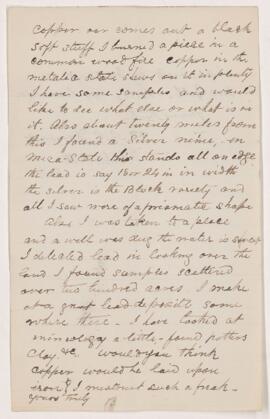 copper ore comes out a black
soft stuff I burned a piece in a
common wood fire copper in the
metalic state shews on it in plenty
I have some samples and would
like to see what else or what is in
it. Also about twenty miles from
this I found a Silver mine, on
Mica-Slate this stands all on edge
the lead is say 18 or 24 in in width
the silver is the Black variety and
all I saw were of a prismatic shape
Also I was taken to a place
and a well was dug the water is sweet
I detected lead in looking over the
land I found samples scattered
over two hundred acres. I make
of a great lead deposit some
where there - I have looked at
minrology a little - found potters
clay, &c. Would you think
copper would be laid upon
iron? I must such a freak -
yours truly